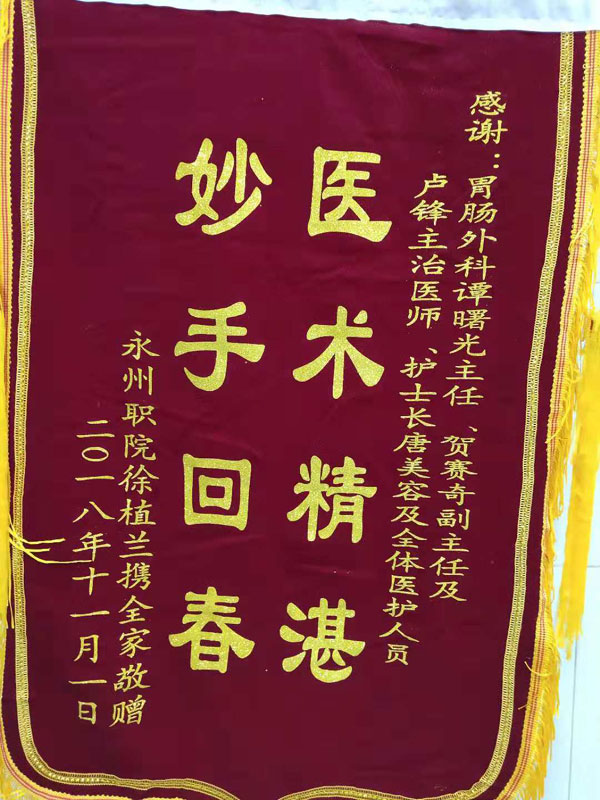 感谢：胃肠外科谭曙光主任、贺赛奇副主任及
卢锋主治医师、护士长唐美容及全体医护人员
医术精湛
妙手回春
永州职院徐植兰携全家敬赠
二〇一八年十一月一日